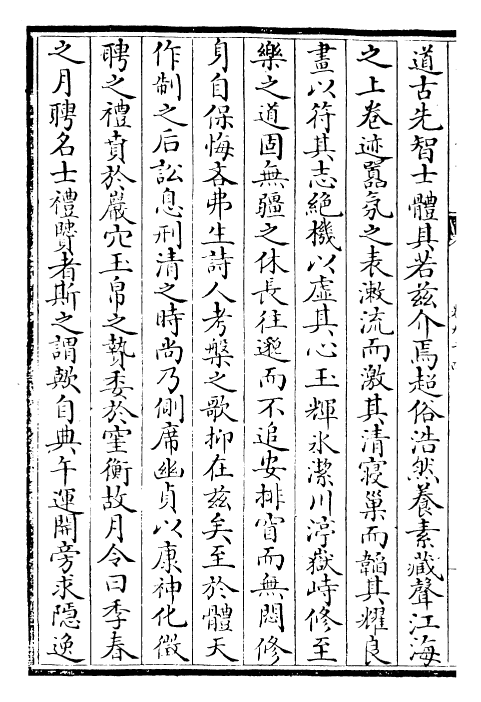 道古先智士體其若兹介焉超俗浩然養素藏聲江海
之上卷迹囂氛之表漱流而激其清寢巢而韜其耀良
畫以符其志絶機以虚其心玉輝氷潔川渟嶽峙修至
樂之道固無疆之休長往邈而不追安排窅而無悶修
身自保悔吝弗生詩人考槃之歌抑在兹矣至於體天
作制之后訟息刑清之時尚乃側席幽貞以康神化徵
聘之禮賁於巖穴玉帛之贄委於窐衡故月令曰季春
之月聘名士禮賢者斯之謂歟自典午運開旁求隠逸